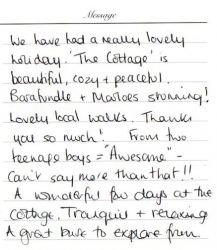 Message
We have had a really lovely
holiday. 'The Cottage' is
beautiful, cozy + peaceful.
Barafundle + Marloes stunning!
Lovely local walks. Thank
you so much! From two
teenage boys = "Awesome" -
Can't say more than that!!
A wonderful few days at the
cottage. Tranquil + relaxing
A great base to explore from